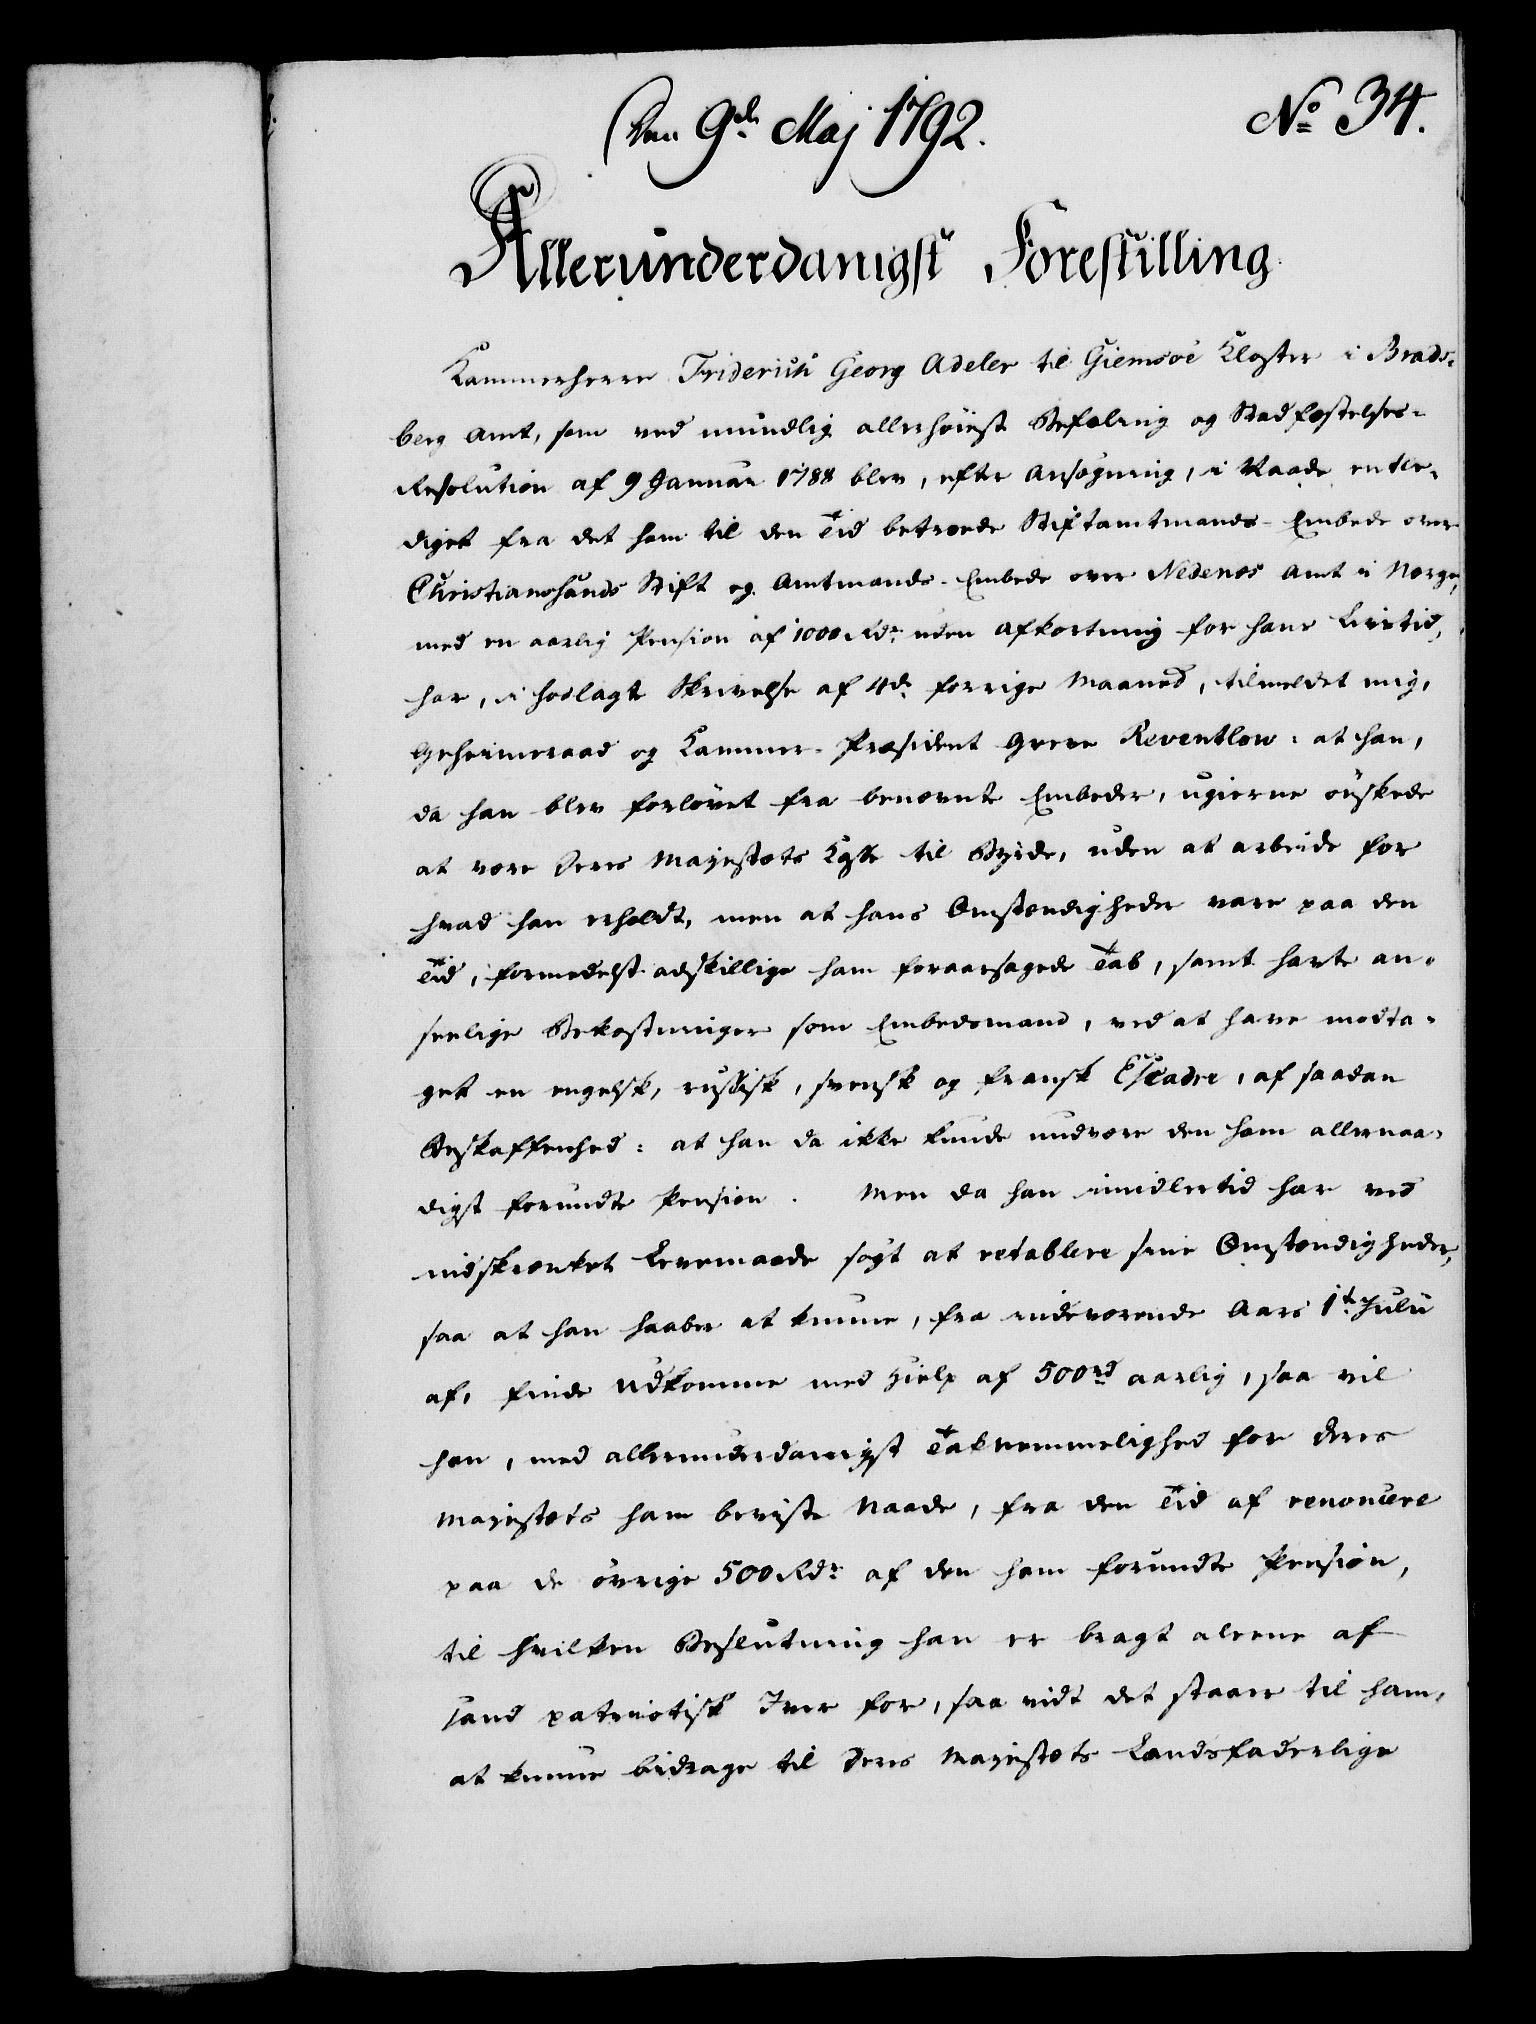 Den 9de Maj 1792.
No 34.
Allerunderdanigst Forestilling.
Kammerherre Friderich Georg Adeler til Giemsøe Kloster i Brads-
berg Amt, som ved mundlig allerhøiest Befaling og Stadfæstelses-
Resolution af 9 Januar 1788 blev, efter Ansøgning, i Naade entle-
diget fra det ham til den Tid betroede Stiftamtmands-Embede over
Christiansands Stift og Amtmands-Embede over Nedenes Amt i Norge,
med en aarlig Pension af 1000 Rdr uden Afkortning for hans Livstid,
har, i hoslagte Skrivelse af 4de forrige Maaned, tilmeldet mig,
Geheimeraad og Kammer-Præsident Greve Reventlow: at han,
da han blev forløvet fra benævnte Embeder, ugierne ønskede
at være Deres Majestæts Kasse til Byrde, uden at arbeide for
hvad han erholdt, men at hans Omstændigheder vare paa den
Tid, formedelst adskillige ham foraarsagede Tab, samt havte an-
seelige Bekostninger som Embedsmand, ved at have modta-
get en engelsk, russisk, svensk og fransk Escadre, af saadan
Beskaffenhed: at han da ikke kunde undvære den ham allernaa-
digst forundte Pension. Men da han imidlertid har ved
indskrænket Levemaade søgt at retablere sine Omstændigheder,
saa at han haaber at kunne, fra indeværende Aars 1te Julii
af, finde Udkomme med Hielp af 500rd aarlig, saa vil
han, med allerunderdanigst Taknemmelighed for Deres
Majestæts ham beviste Naade, fra den Tid af renoncere
paa de øvrige 500 Rdr af den ham forundte Pension,
til hvilken Beslutning han er bragt alene af
sand patriotisk Iver for, saa vidt det staaer til ham,
at kunne bidrage til Deres Majestæts Landsfaderlige